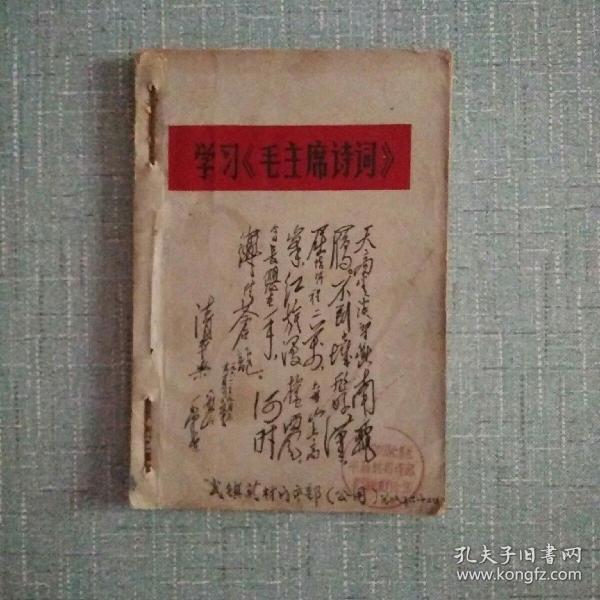 学习《毛主席诗词》
天高云淡望断南飛
雁。不到長城非好漢
屈指行程二萬。六盘山高
峯红旗漫捲西风
今日長纓在手。何时
縛住蒼龍。
清平樂
六盘山
药材门市部(公用)
孔夫子旧书网
www.kongfz.com